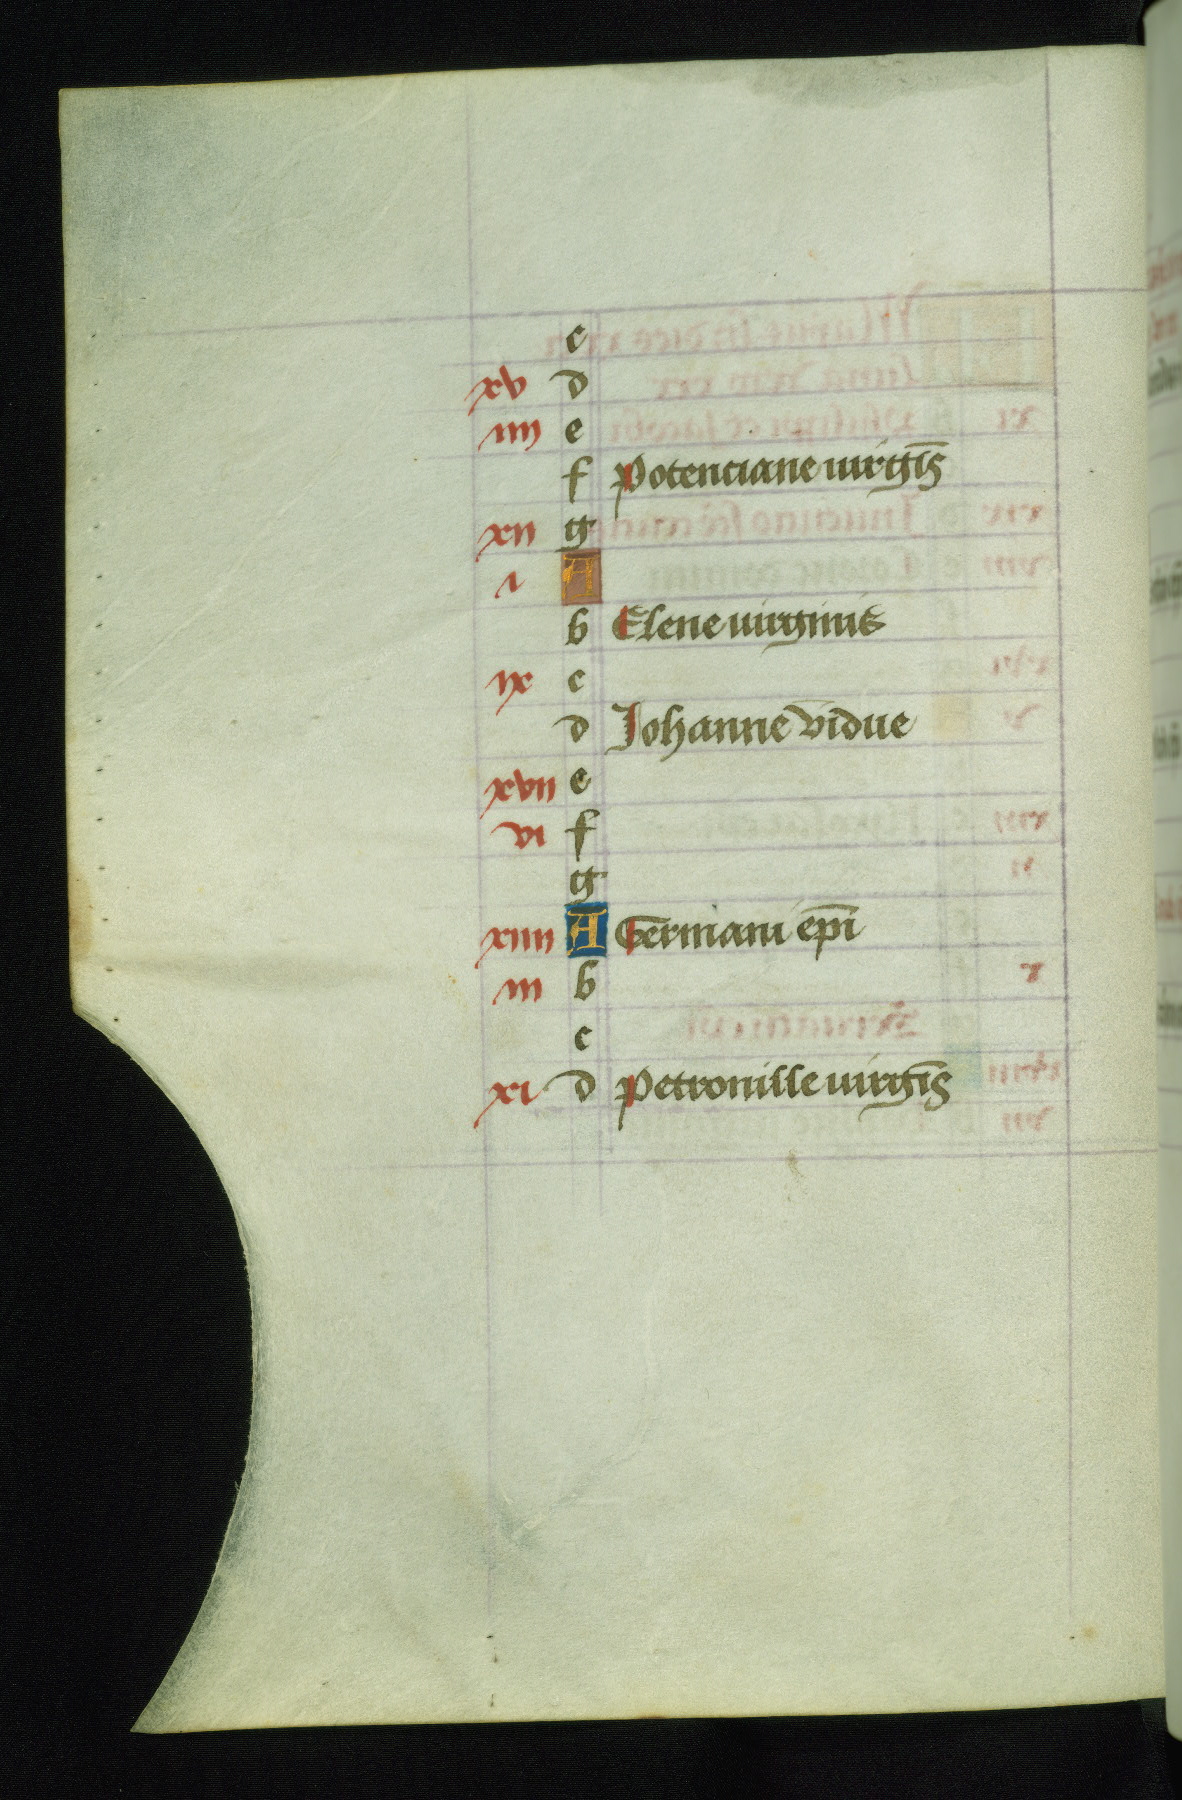 c
xv d
iiii e
f Potenciane uirgīs
xii g
i A
b Elene uirginis
ix c
d Johanne vidue
xvii e
vi f
g
xiiii A Germani ep̄i
iii b
c
xi d Petronille uirgīs